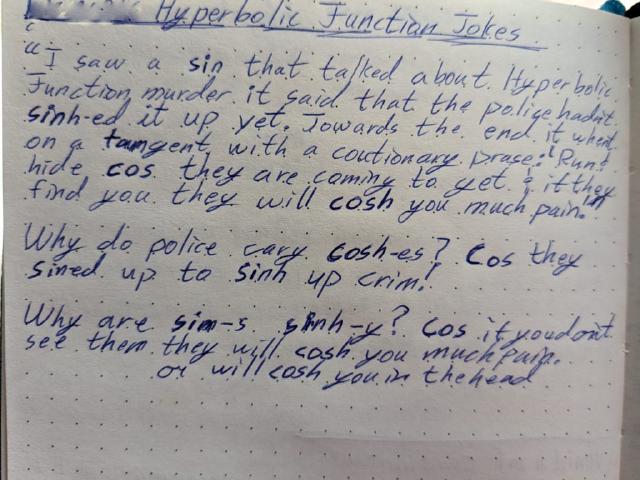 Hyperbolic Function Jokes
"I saw a sin that talked about Hyperbolic
Function murder it said that the police hadn't
sinh-ed it up yet. Towards the end it whent
on a tangent, with a coutionary prase: "Run!
hide cos they are coming to get ; if they
find you they will cosh you much pain.""
Why do police cary cosh-es? Cos they
sined up to sinh up crim!
Why are sim-s sinh-y? Cos if you don't
see them they will cosh you much pain.
or will cosh you in the head